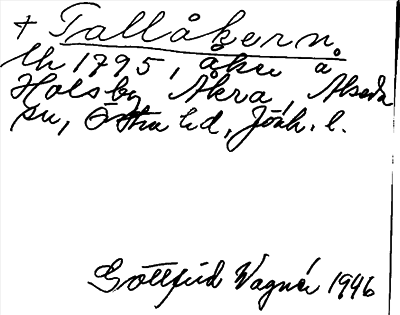 + Tallåkern.
lh 1795, åker å
Holsby Åkra, Alseda
sn, Östra hd, Jönk. l.
Gottfrid Wagnér 1946